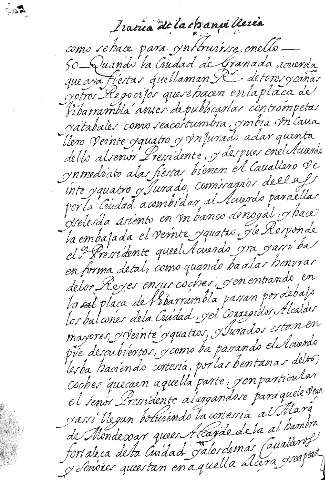 Pratica de la chancilleria
como se hace para ynstruirse en ello
50 Quando la Ciudad de Granada acuerda
que aya fiestas que llaman Rs de toros y cañas
y otros Regocijos que se hacen en la plaça de
Vibarrambla antes de publicarlas con trompetas
y atabales como se acostumbra, ymbia un Cava
llero Veinte y quatro y un jurado a dar quenta
dello al señor Presidente, y despues en el Acuerdo
ynmediato a las fiestas bienen el Cavallero Ve
inte y quatro y Jurado, comisarios dellas
por la Ciudad a combidar al Acuerdo para ellas
y se les da asiento en un banco de nogal, y hace
la embajada el Veinte y quatro, y le Responde
el Presidente que el Acuerdo yra y assi ba
en forma de tal, como quando ba a las honrras
de los Reyes en sus coches, y en entrando en
la plaça de Vibarrambla pasan por debajo
los balcones de la Ciudad, y el Corregidor Alcaldes
mayores, y Veinte y quatros, y Jurados estan en
pie descubiertos, y como ba pasando el Acuerdo
les ba haciendo cortesia, por las bentanas de los
coches que caen a aquella parte, y en particular
el señor Presidente alargandose para que le vean
y assi llegan bolviendo la cortesia al Marq
de Mondejar que es Alcayde de la alhambra
fortaleça desta Ciudad y a los demas Cavalleros
y Señores que estan en aquella acera y